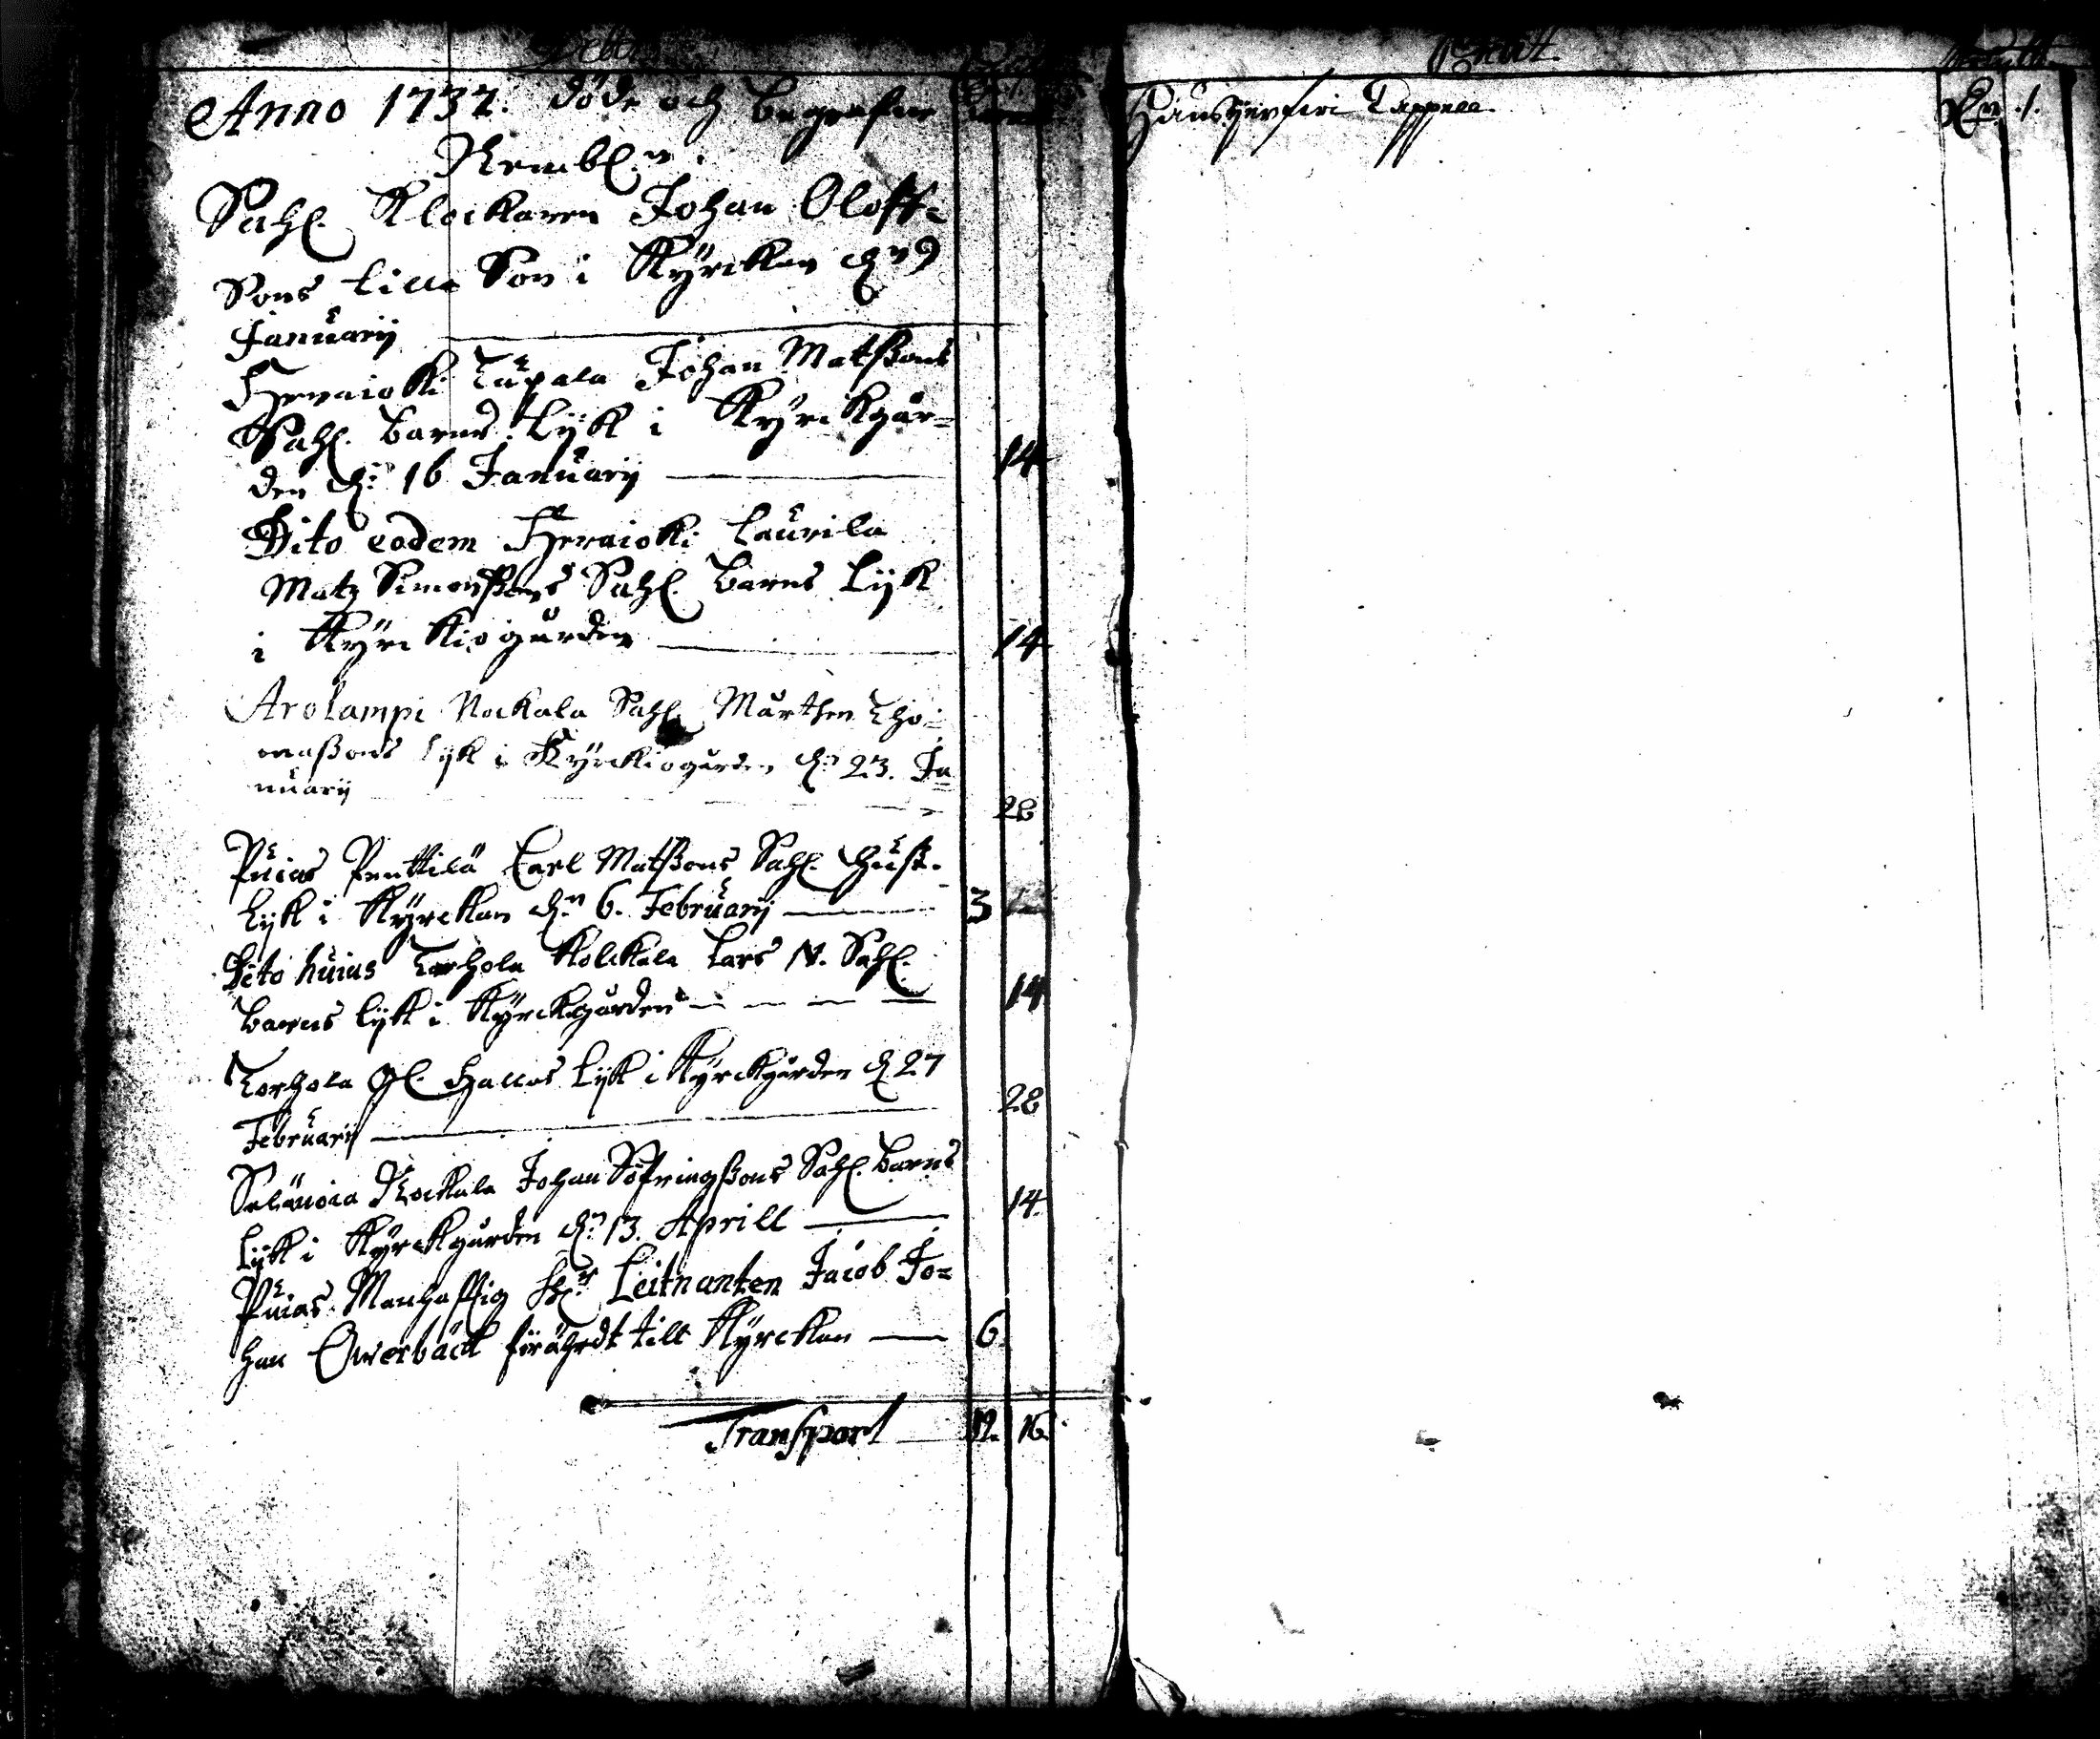 Debet
Anno 1737. döde och begrafne
Nembl.n
Sahl. Klockaren Johan Oloff=
Sons lilla Son i Kyrckan d.n 9
Januarij
Heraioki Tupala Johan Matßons
Sahl. barns Lijk i Kyrckgår=
den d.n 16 Januarij 14
Dito eodem Heraioki Laurila
Matz Simonßons Sahl. barns Lijk
i Kyrckiogården 14
Arolampi Nockala Sahl. Mårthen Tho=
maßons Lijk i Kyrckiogården d.n 23. Ja=
nuarij 28
Puias Penttilä Carl Matßons Sahl. Hust.
Lijk i Kyrckan d.n 6. Februarij 3
Dito huius Torhola Kolckala Lars N. Sahl.
barns Lijk i Kyrckgården 14
Torhola Gl. Hallos Lijk i Kyrckgården d. 27
Februarij 28
Selänoia Nockala Johan Söfringßons Sahl. barns
Lijk i Kyrckgården d.n 13. Aprill 14.
Puias Manhafftig H.r Leitnanten Jacob Jo=
han Owerbäck förährdt till Kyrckan 6.
Transport 12. 16.
Credit
Hausjerfwi Cappell